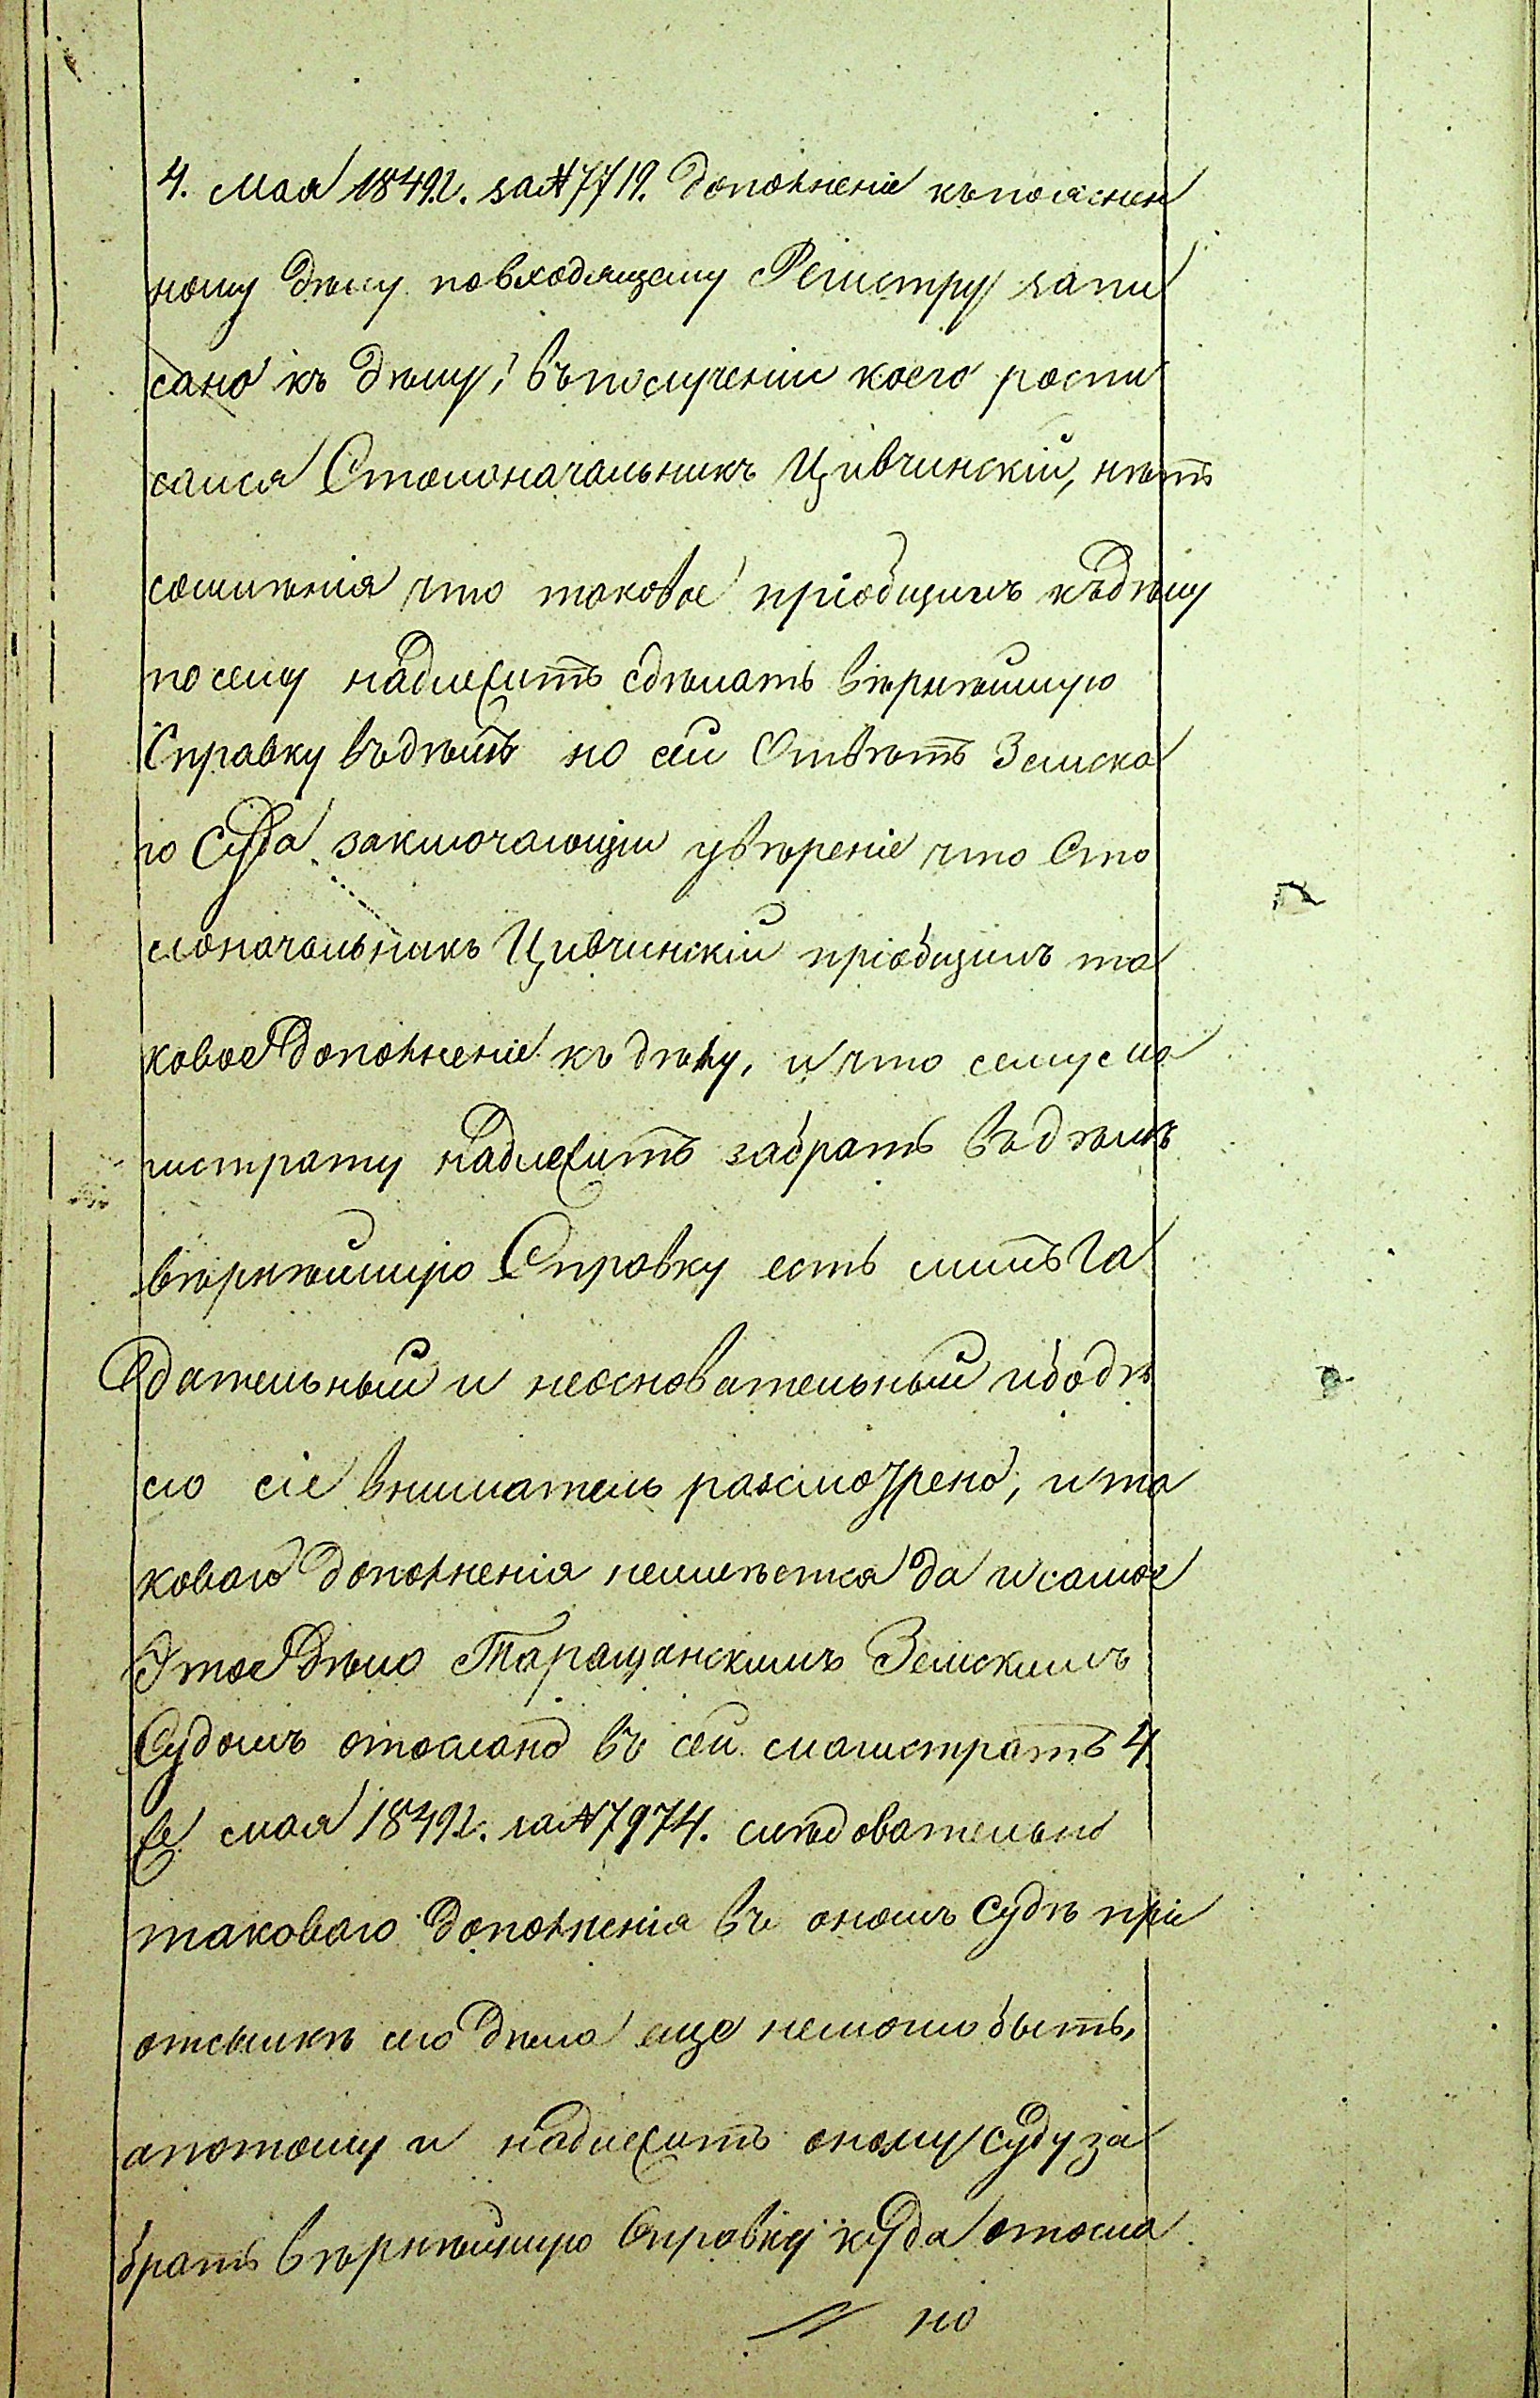 4. Мая 1849 г. за № 7719. дополненіе къ пояснен
ному дѣлу по входящему Регистру запи
сано къ дѣлу, въ полученіи коего роспи
сался Столоначальникъ Цивчинскій, нѣтъ
сомнѣнія что таковое пріобщилъ къ дѣлу
по сему надлежитъ сдѣлать вѣрнѣйшую
Справку въ дѣлѣ но сей Отвѣтъ Земска
го Суда заключающій увѣреніе что Сто
лоначальникъ Цивчинскій пріобщилъ та
ковое дополненіе къ дѣлу, и что сему Ма
гистрату надлежитъ забрать въ дѣлѣ
вѣрнѣйшую Справку есть лишъ Га
дательный и неосновательный ибо дѣ
ло сіе вниматель разсмотрено, и та
коваго дополненія неимѣется да и самое
Этое дѣло Таращанскимъ Земскимъ
Судомъ отослано въ сей магистратъ 4.
же мая 1849 г. за № 7974. слѣдовательно
таковаго дополненія въ ономъ Судѣ при
отсылкѣ сло дѣла еще немогло быть,
а потому и надлежитъ оному Суду за
брать вѣрнѣйшую Справку куда отосла
но